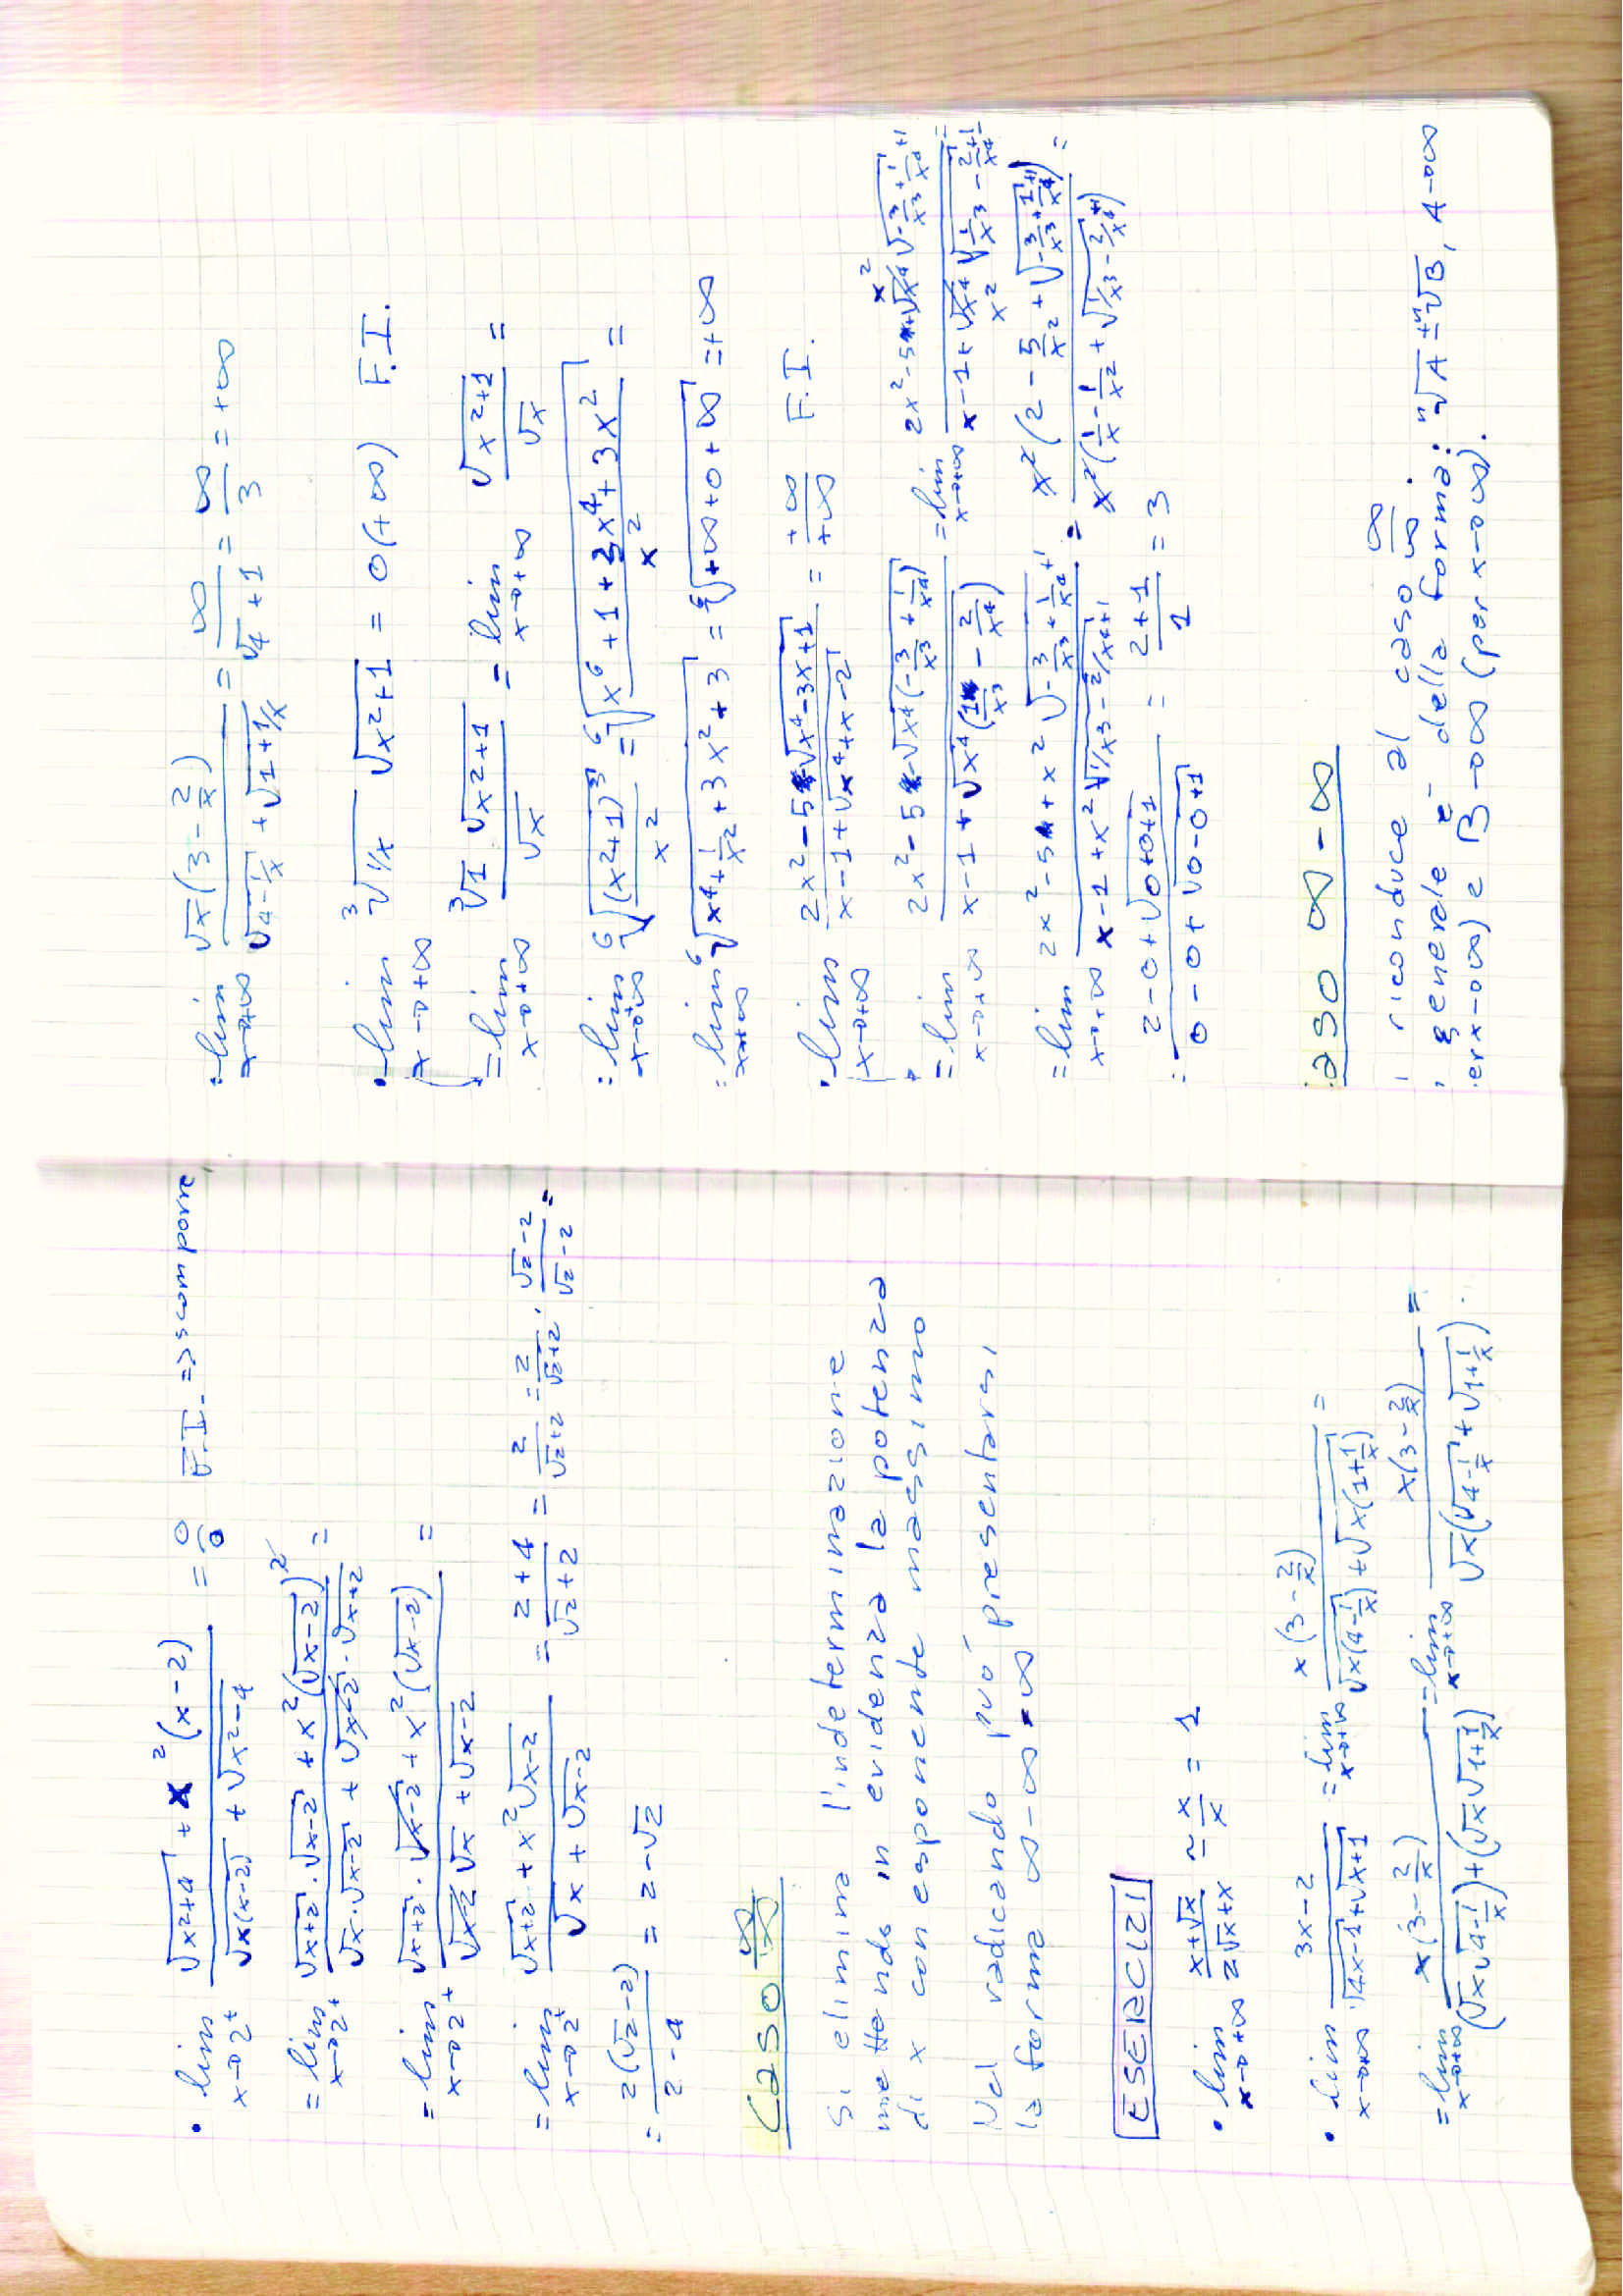 • lim x→2⁺ (√(x²+4) + x²(x-2)) / (√(x(x-2)) + √(x²-4)) = 0/0 F.I. => scomporre
= lim x→2⁺ (√(x+2)·√(x-2) + x²(√(x-2))²) / (√x·√(x-2) + √(x-2)·√(x+2)) =
= lim x→2⁺ (√(x+2)·√(x-2) + x²(√(x-2))) / (√(x-2) √x + √(x-2)) =
= lim x→2⁺ (√(x+2) + x²√(x-2)) / (√x + √(x-2)) = (2+4)/(√2+2) = 2/(√2+2) = 2/(√2+2) · (√2-2)/(√2-2) =
= 2(√2-2)/(2-4) = 2-√2
Caso ∞/∞
Si elimina l'indeterminazione
mettendo in evidenza la potenza
di x con esponente massimo
Nel radicando può presentarsi
la forma ∞-∞
ESERCIZI
• lim x→+∞ (x+√x)/(2√x+x) ≃ x/x = 1
• lim x→+∞ (3x-2)/(√(4x-1)+√(x+1)) = lim x→+∞ x(3-2/x)/(√(x(4-1/x))+√(x(1+1/x))) =
= lim x→+∞ x(3-2/x)/((√x√(4-1/x))+(√x√(1+1/x))) = lim x→+∞ x(3-2/x)/(√x(√(4-1/x)+√(1+1/x))) =
= lim x→+∞ √x(3-2/x)/(√(4-1/x)+√(1+1/x)) = ∞/(√4+1) = ∞/3 = +∞
• lim x→+∞ ³√(1/x) √(x²+1) = 0(+∞) F.I.
= lim x→+∞ (³√1 √(x²+1))/√x = lim x→+∞ √(x²+1)/√x =
= lim x→+∞ ⁶√((x²+1)³/x²) = ⁶√((x⁶+1+3x⁴+3x²)/x²) =
= lim x→+∞ ⁶√(x⁴+1/x²+3x²+3) = ⁶√(+∞+0+∞) = +∞
• lim x→+∞ (2x²-5+√(x⁴-3x+1))/(x-1+√(x⁴+x-2)) = +∞/+∞ F.I.
= lim x→+∞ (2x²-5+√(x⁴(-3/x³+1/x⁴)))/(x-1+√(x⁴(1/x³-2/x⁴))) = lim x→+∞ (2x²-5+√x⁴√(-3/x³+1/x⁴+1))/(x-1+√x⁴√(1/x³-2/x⁴+1)) =
= lim x→+∞ (2x²-5+x²√(-3/x³+1/x⁴+1))/(x-1+x²√(1/x³-2/x⁴+1)) = x²(2-5/x²+√(-3/x³+1/x⁴+1))/(x²(1/x-1/x²+√(1/x³-2/x⁴+1))) =
= (2-0+√(0+0+1))/(0-0+√(0-0+1)) = (2+1)/1 = 3
aso ∞-∞
i riconduce al caso ∞/∞.
generale è della forma: ⁿ√A ± ᵐ√B, A→∞
er x→∞) e B→∞ (per x→∞).